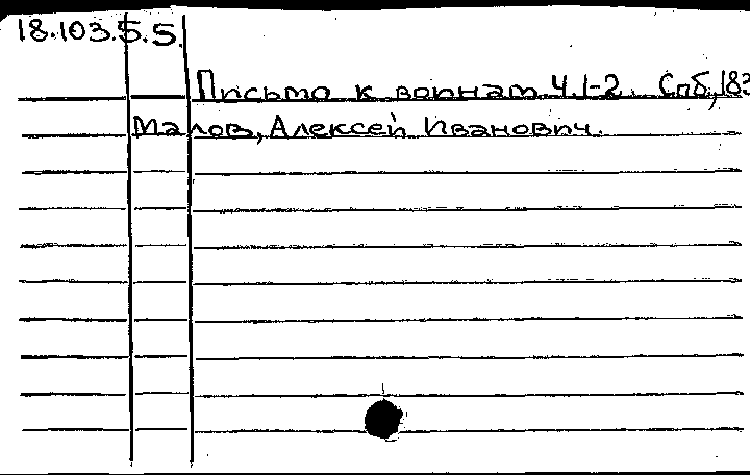 18.103.5.5.
Письмо к воинам Ч.1-2. Спб, 183
Малов, Алексей Иванович.